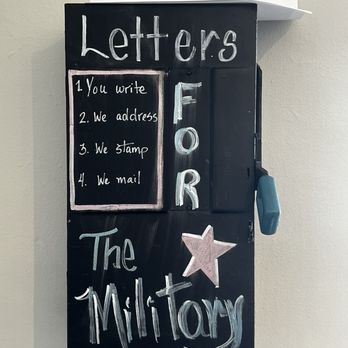 Letters
1. You write
2. We address
3. We stamp
4. We mail
FOR
The
Military